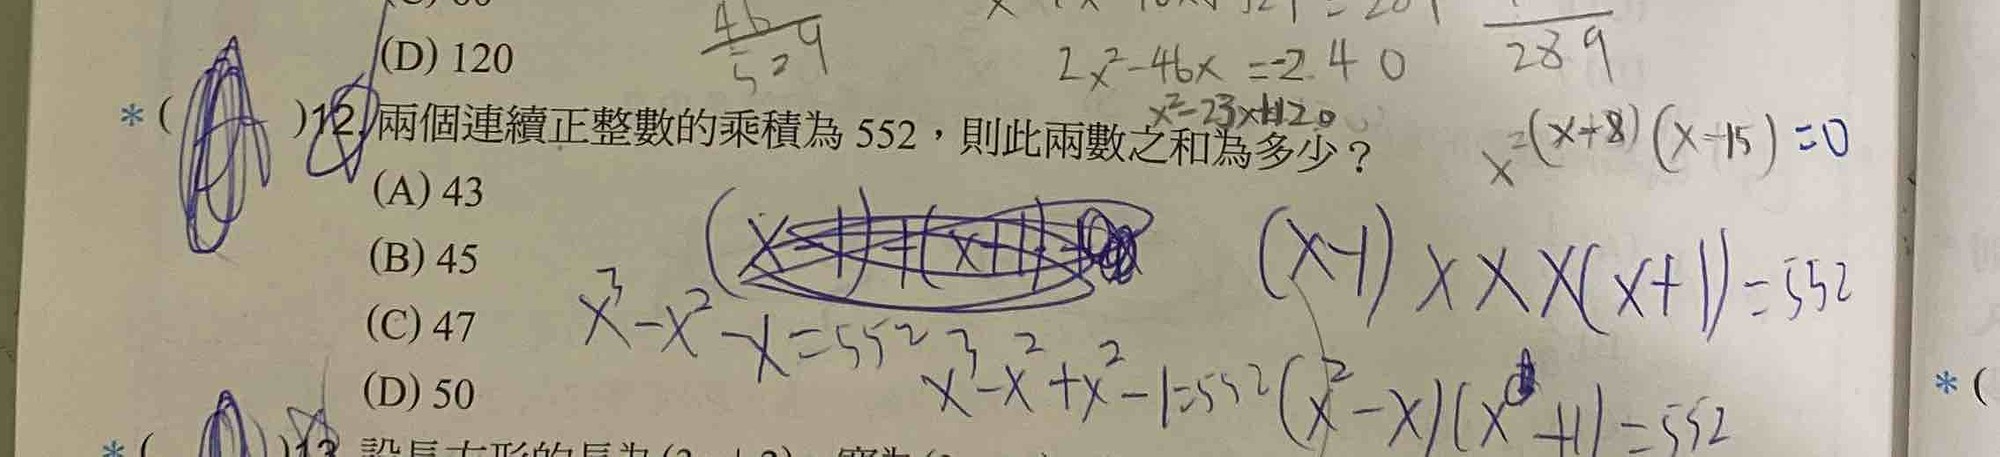 (D) 120
529
2x²-46x=-240
289
x²-23x+120
*( )12. 兩個連續正整數的乘積為 552，則此兩數之和為多少？
(x+8)(x-15)=0
(A) 43
(B) 45
(C) 47
(D) 50
(x-1)×x×(x+1)=552
x³-x²-x=552
x³-x²+x²-1=552
(x²-x)(x+1)=552
*(
*( )13.